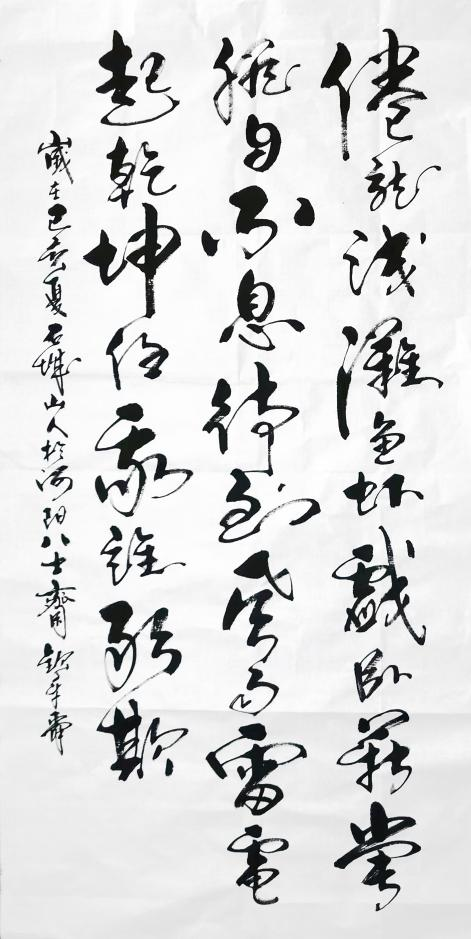 倦龍淺灘魚虾戲卧薪嘗
膽自不息待到風雨雷電
起乾坤任我誰敢欺
歲在己亥夏石城山人於河阳八士齋